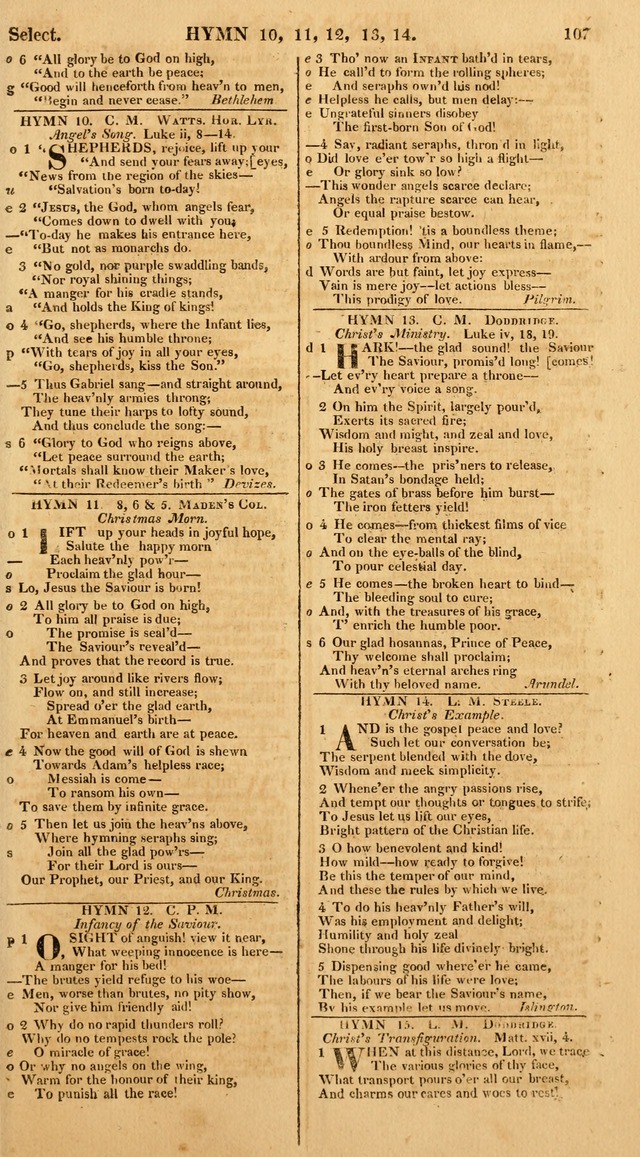 Select. HYMN 10, 11, 12, 13, 14. 107
o 6 “All glory be to God on high,
“And to the earth be peace;
g “Good will henceforth from heav'n to men,
“Begin and never cease.” Bethlehem
HYMN 10. C. M. WATTS. HOR. LYR.
Angel's Song. Luke ii, 8—14.
o 1 “SHEPHERDS, rejoice, lift up your
“And send your fears away; [eyes,
“News from the region of the skies—
u “Salvation's born to-day!
e 2 “JESUS, the God, whom angels fear,
“Comes down to dwell with you;
—“To-day he makes his entrance here,
e “But not as monarchs do.
3 “No gold, nor purple swaddling bands,
“Nor royal shining things;
“A manger for his cradle stands,
a “And holds the King of kings!
o 4 “Go, shepherds, where the Infant lies,
“And see his humble throne;
p “With tears of joy in all your eyes,
“Go, shepherds, kiss the Son.”
—5 Thus Gabriel sang—and straight around,
The heav'nly armies throng;
They tune their harps to lofty sound,
And thus conclude the song:—
s 6 “Glory to God who reigns above,
“Let peace surround the earth;
“Mortals shall know their Maker's love,
“At their Redeemer's birth” Devizes.
HYMN 11. 8, 6 & 5. MADEN'S COL.
Christmas Morn.
o 1 LIFT up your heads in joyful hope,
Salute the happy morn
— Each heav'nly pow'r—
o Proclaim the glad hour—
s Lo, Jesus the Saviour is born!
o 2 All glory be to God on high,
To him all praise is due;
o The promise is seal'd—
The Saviour's reveal'd—
And proves that the record is true.
3 Let joy around like rivers flow;
Flow on, and still increase;
Spread o'er the glad earth,
At Emmanuel's birth—
For heaven and earth are at peace.
e 4 Now the good will of God is shewn
Towards Adam's helpless race;
o Messiah is come—
To ransom his own—
To save them by infinite grace.
o 5 Then let us join the heav'ns above,
Where hymning seraphs sing;
s Join all the glad pow'rs—
For their Lord is ours—
Our Prophet, our Priest, and our King.
Christmas.
HYMN 12. C. P. M.
Infancy of the Saviour.
p 1 O SIGHT of anguish! view it near,
, What weeping innocence is here—
A manger for his bed!
—The brutes yield refuge to his woe—
e Men, worse than brutes, no pity show,
Nor give him friendly aid!
o 2 Why do no rapid thunders roll?
Why do no tempests rock the pole?
e O miracle of grace!
o Or why no angels on the wing,
Warm for the honour of their king,
e To punish all the race!
e 3 Tho' now an INFANT bath'd in tears,
o He call'd to form the rolling spheres;
e And seraphs own'd his nod!
e Helpless he calls, but men delay:—
e Ungrateful sinners disobey
The first-born Son of God!
—4 Say, radiant seraphs, thron'd in light,
o Did love e'er tow'r so high a flight—
e Or glory sink so low?
—This wonder angels scarce declare;
Angels the rapture scarce can hear,
Or equal praise bestow.
e 5 Redemption! 'tis a boundless theme;
o Thou boundless Mind, our hearts in flame,—
With ardour from above:
d Words are but faint, let joy express—
Vain is mere joy—let actions bless—
This prodigy of love. Pilgrim.
HYMN 13. C. M. DODDRIDGE.
Christ's Ministry. Luke iv, 18, 19.
d 1 HARK!—the glad sound! the Saviour
The Saviour, promis'd long! [comes!
—Let ev'ry heart prepare a throne—
And ev'ry voice a song.
2 On him the Spirit, largely pour'd,
Exerts its sacred fire;
Wisdom and might, and zeal and love,
His holy breast inspire.
o 3 He comes—the pris'ners to release,
In Satan's bondage held;
o The gates of brass before him burst—
The iron fetters yield!
o 4 He comes—from thickest films of vice
To clear the mental ray;
o And on the eye-balls of the blind,
To pour celestial day.
e 5 He comes—the broken heart to bind—
The bleeding soul to cure;
o And, with the treasures of his grace,
T' enrich the humble poor.
s 6 Our glad hosannas, Prince of Peace,
Thy welcome shall proclaim;
And heav'n's eternal arches ring
With thy beloved name. Arundel.
HYMN 14. L. M. STEELE.
Christ's Example.
1 AND is the gospel peace and love?
Such let our conversation be;
The serpent blended with the dove,
Wisdom and meek simplicity.
2 Whene'er the angry passions rise,
And tempt our thoughts or tongues to strife,
To Jesus let us lift our eyes,
Bright pattern of the Christian life.
3 O how benevolent and kind!
How mild—how ready to forgive!
Be this the temper of our mind,
And these the rules by which we live.
4 To do his heav'nly Father's will,
Was his employment and delight;
Humility and holy zeal
Shone through his life divinely bright.
5 Dispensing good where'er he came,
The labours of his life were love;
Then, if we bear the Saviour's name,
By his example let us move. Islington.
HYMN 15. L. M. DODDRIDGE.
Christ's Transfiguration. Matt. xvii, 4.
1 WHEN at this distance, Lord, we trace
The various glories of thy face,
What transport pours o'er all our breast,
And charms our cares and woes to rest!